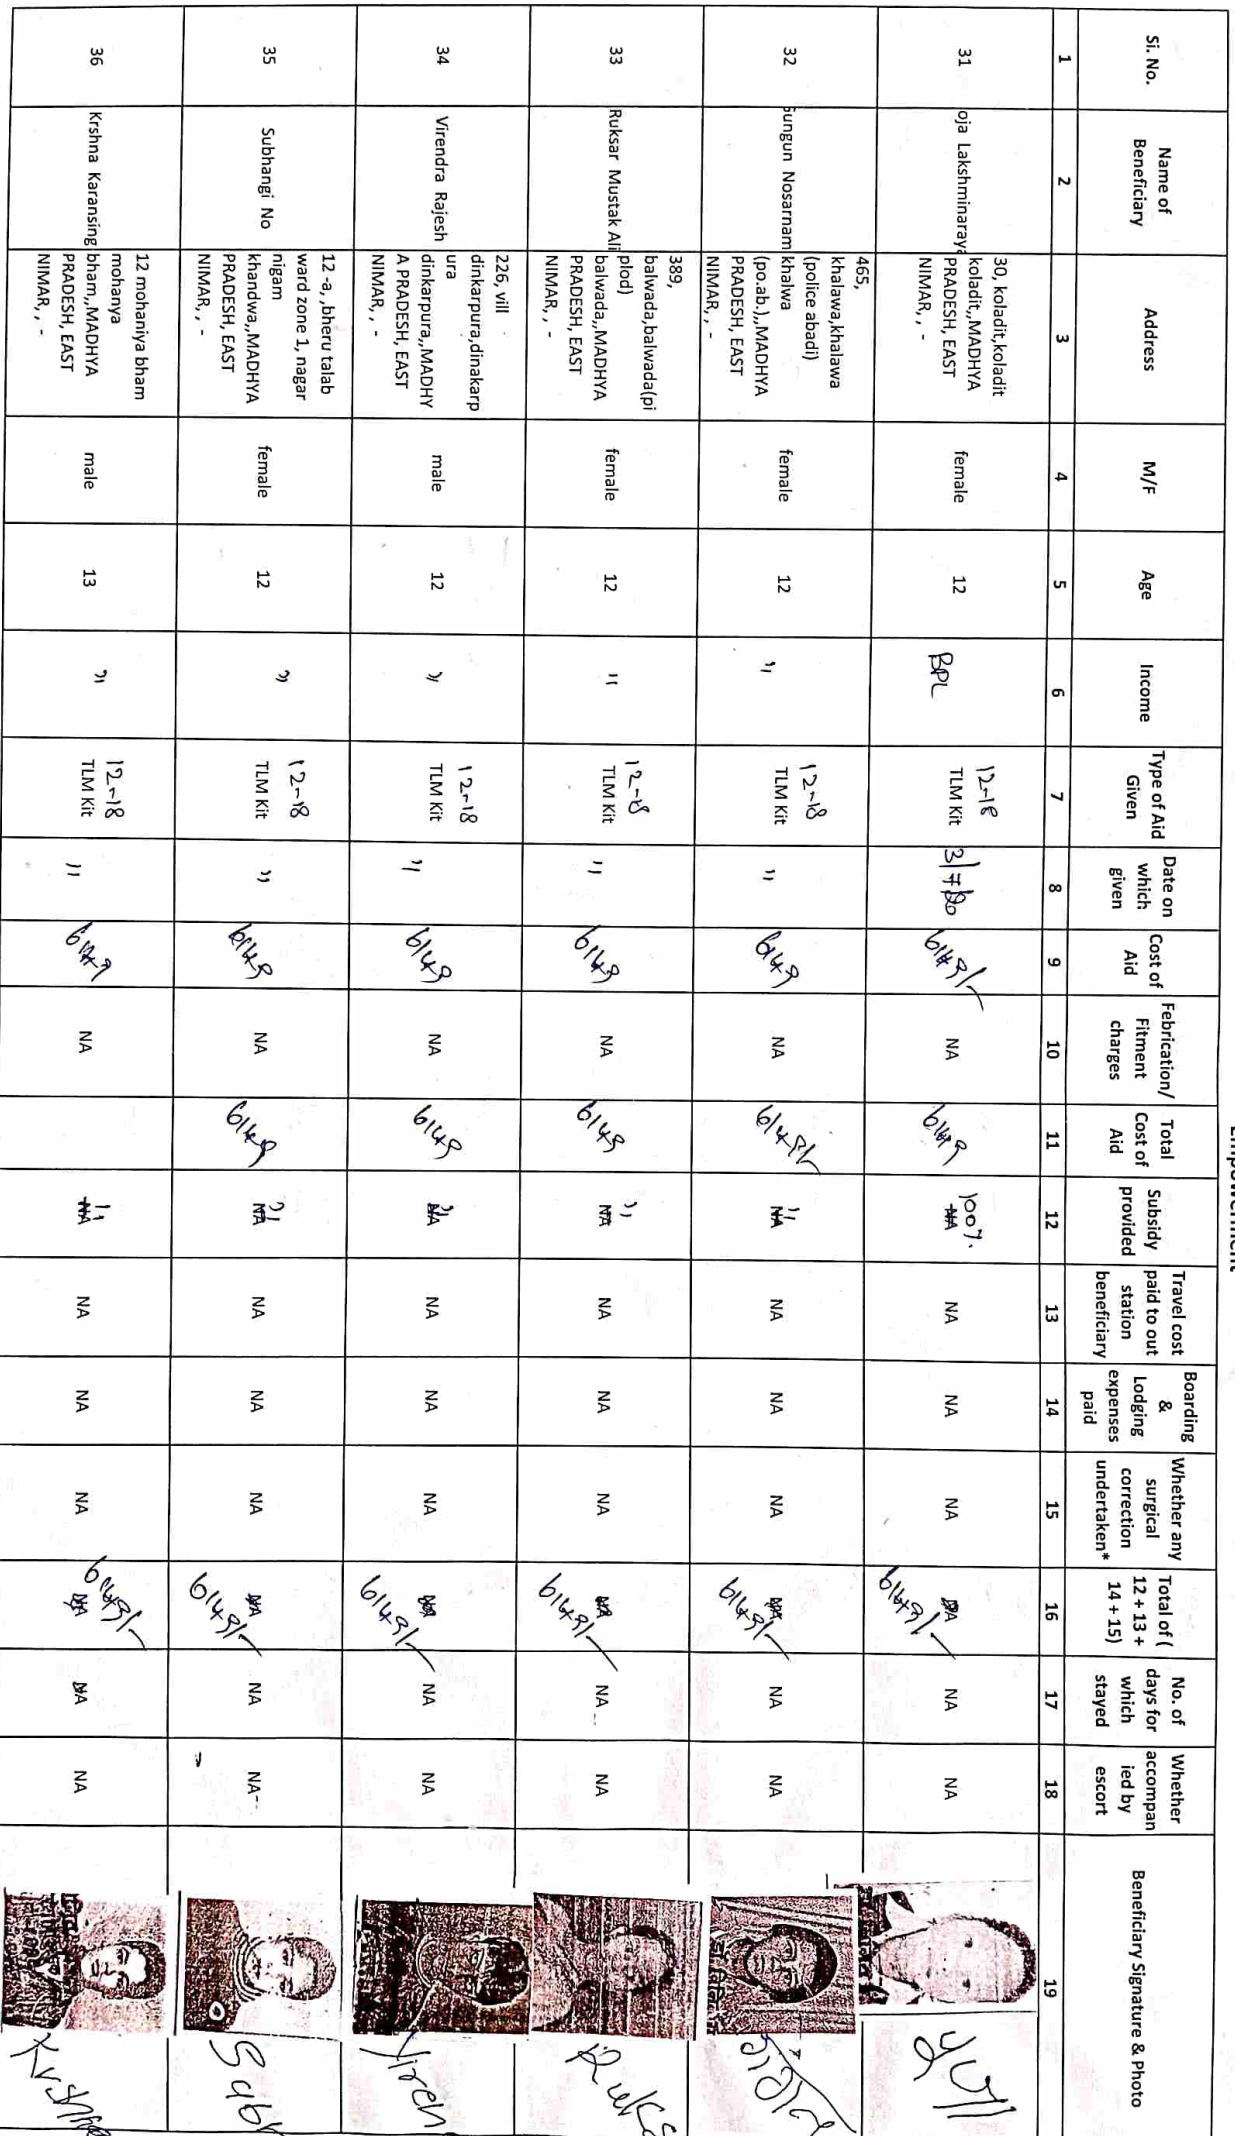 Empowerment
Si. No.
Name of
Beneficiary
Address
M/F
Age
Income
Type of Aid
Given
Date on
which
given
Cost of
Aid
Febrication/
Fitment
charges
Total
Cost of
Aid
Subsidy
provided
Travel cost
paid to out
station
beneficiary
Boarding
&
Lodging
expenses
paid
Whether any
surgical
correction
undertaken*
Total of (
12 + 13 +
14 + 15)
No. of
days for
which
stayed
Whether
accompan
ied by
escort
Beneficiary Signature & Photo
1 2 3 4 5 6 7 8 9 10 11 12 13 14 15 16 17 18 19
31
oja Lakshminaray
30, koladit,koladit
koladit,,MADHYA
PRADESH, EAST
NIMAR, , -
female
12
BPL
12-18
TLM Kit
6149/-
NA
6149
100%
NA
NA
NA
NA
NA
6149/-
NA
NA
32
ungun Nosarnam
465,
khalawa,khalawa
(police abadi)
khalwa
(po.ab.),,MADHYA
PRADESH, EAST
NIMAR, , -
female
12
"
12-18
TLM Kit
"
6149
NA
6149/-
"
NA
NA
NA
NA
NA
6149/-
NA
NA
33
Ruksar Mustak Ali
389,
balwada,balwada(pi
plod)
balwada,,MADHYA
PRADESH, EAST
NIMAR, , -
female
12
"
12-18
TLM Kit
"
6149
NA
6149
"
NA
NA
NA
NA
NA
6149/-
NA
NA
Ruks
34
Virendra Rajesh
226, vill
dinkarpura,dinakarp
ura
dinkarpura,,MADHY
A PRADESH, EAST
NIMAR, , -
male
12
"
12-18
TLM Kit
"
6149
NA
6149
"
NA
NA
NA
NA
NA
6149/-
NA
NA
Viren
35
Subhangi No
12 -a,,bheru talab
ward zone 1, nagar
nigam
khandwa,,MADHYA
PRADESH, EAST
NIMAR, , -
female
12
"
12-18
TLM Kit
"
6149
NA
6149
"
NA
NA
NA
NA
NA
6149/-
NA
NA
36
Krshna Karansing
12 mohaniya bham
mohanya
bham,,MADHYA
PRADESH, EAST
NIMAR, , -
male
13
"
12-18
TLM Kit
"
6149
NA
"
NA
NA
NA
NA
NA
6149/-
NA
NA